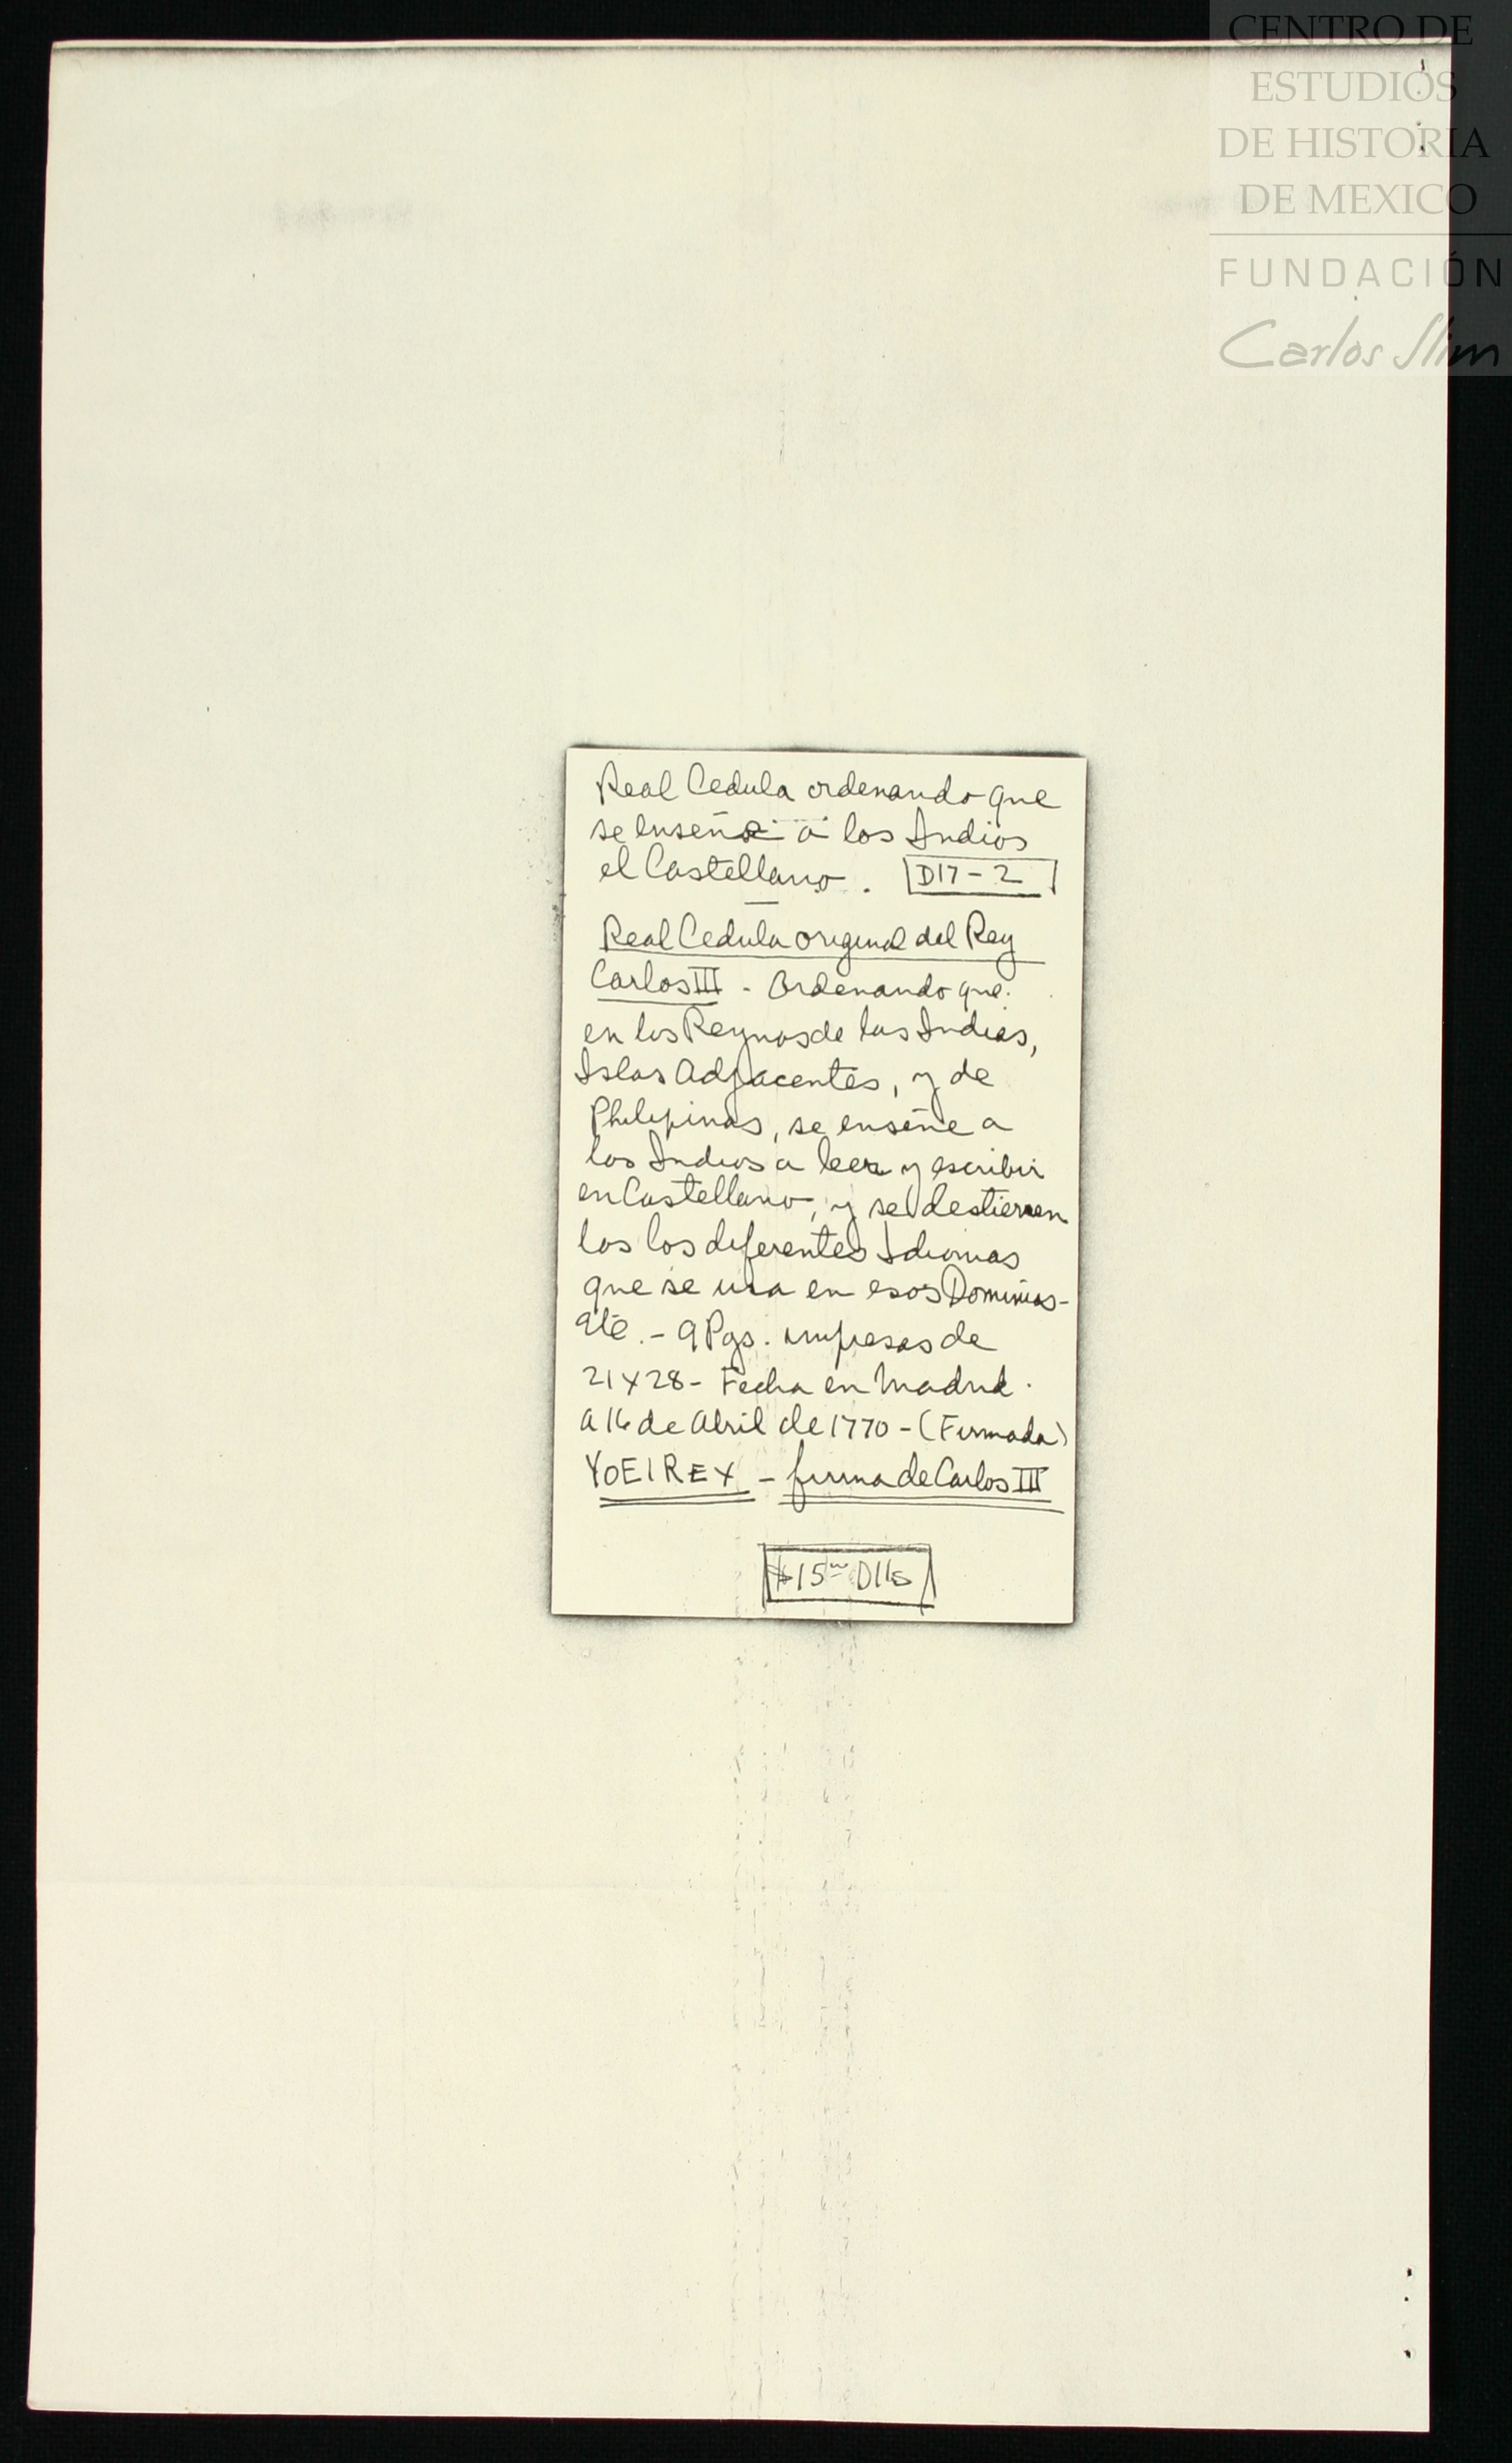 CENTRO DE
ESTUDIOS
DE HISTORIA
DE MEXICO
FUNDACIÓN
Carlos Slim
Real Cedula ordenando que
se enseñe a los Indios
el Castellano. D17-2
Real Cedula original del Rey
Carlos III - Ordenando que
en los Reynos de las Indias,
Islas Adjacentes, y de
Philipinas, se enseñe a
los Indios a leer y escribir
en Castellano, y se destierren
los los diferentes Idiomas
que se usa en esos Dominios-
etc.- 9 Pgs. impresas de
21x28- Fecha en Madrid.
a 16 de Abril de 1770-(Firmada)
YOEIREX - firma de Carlos III
$15 Dlls